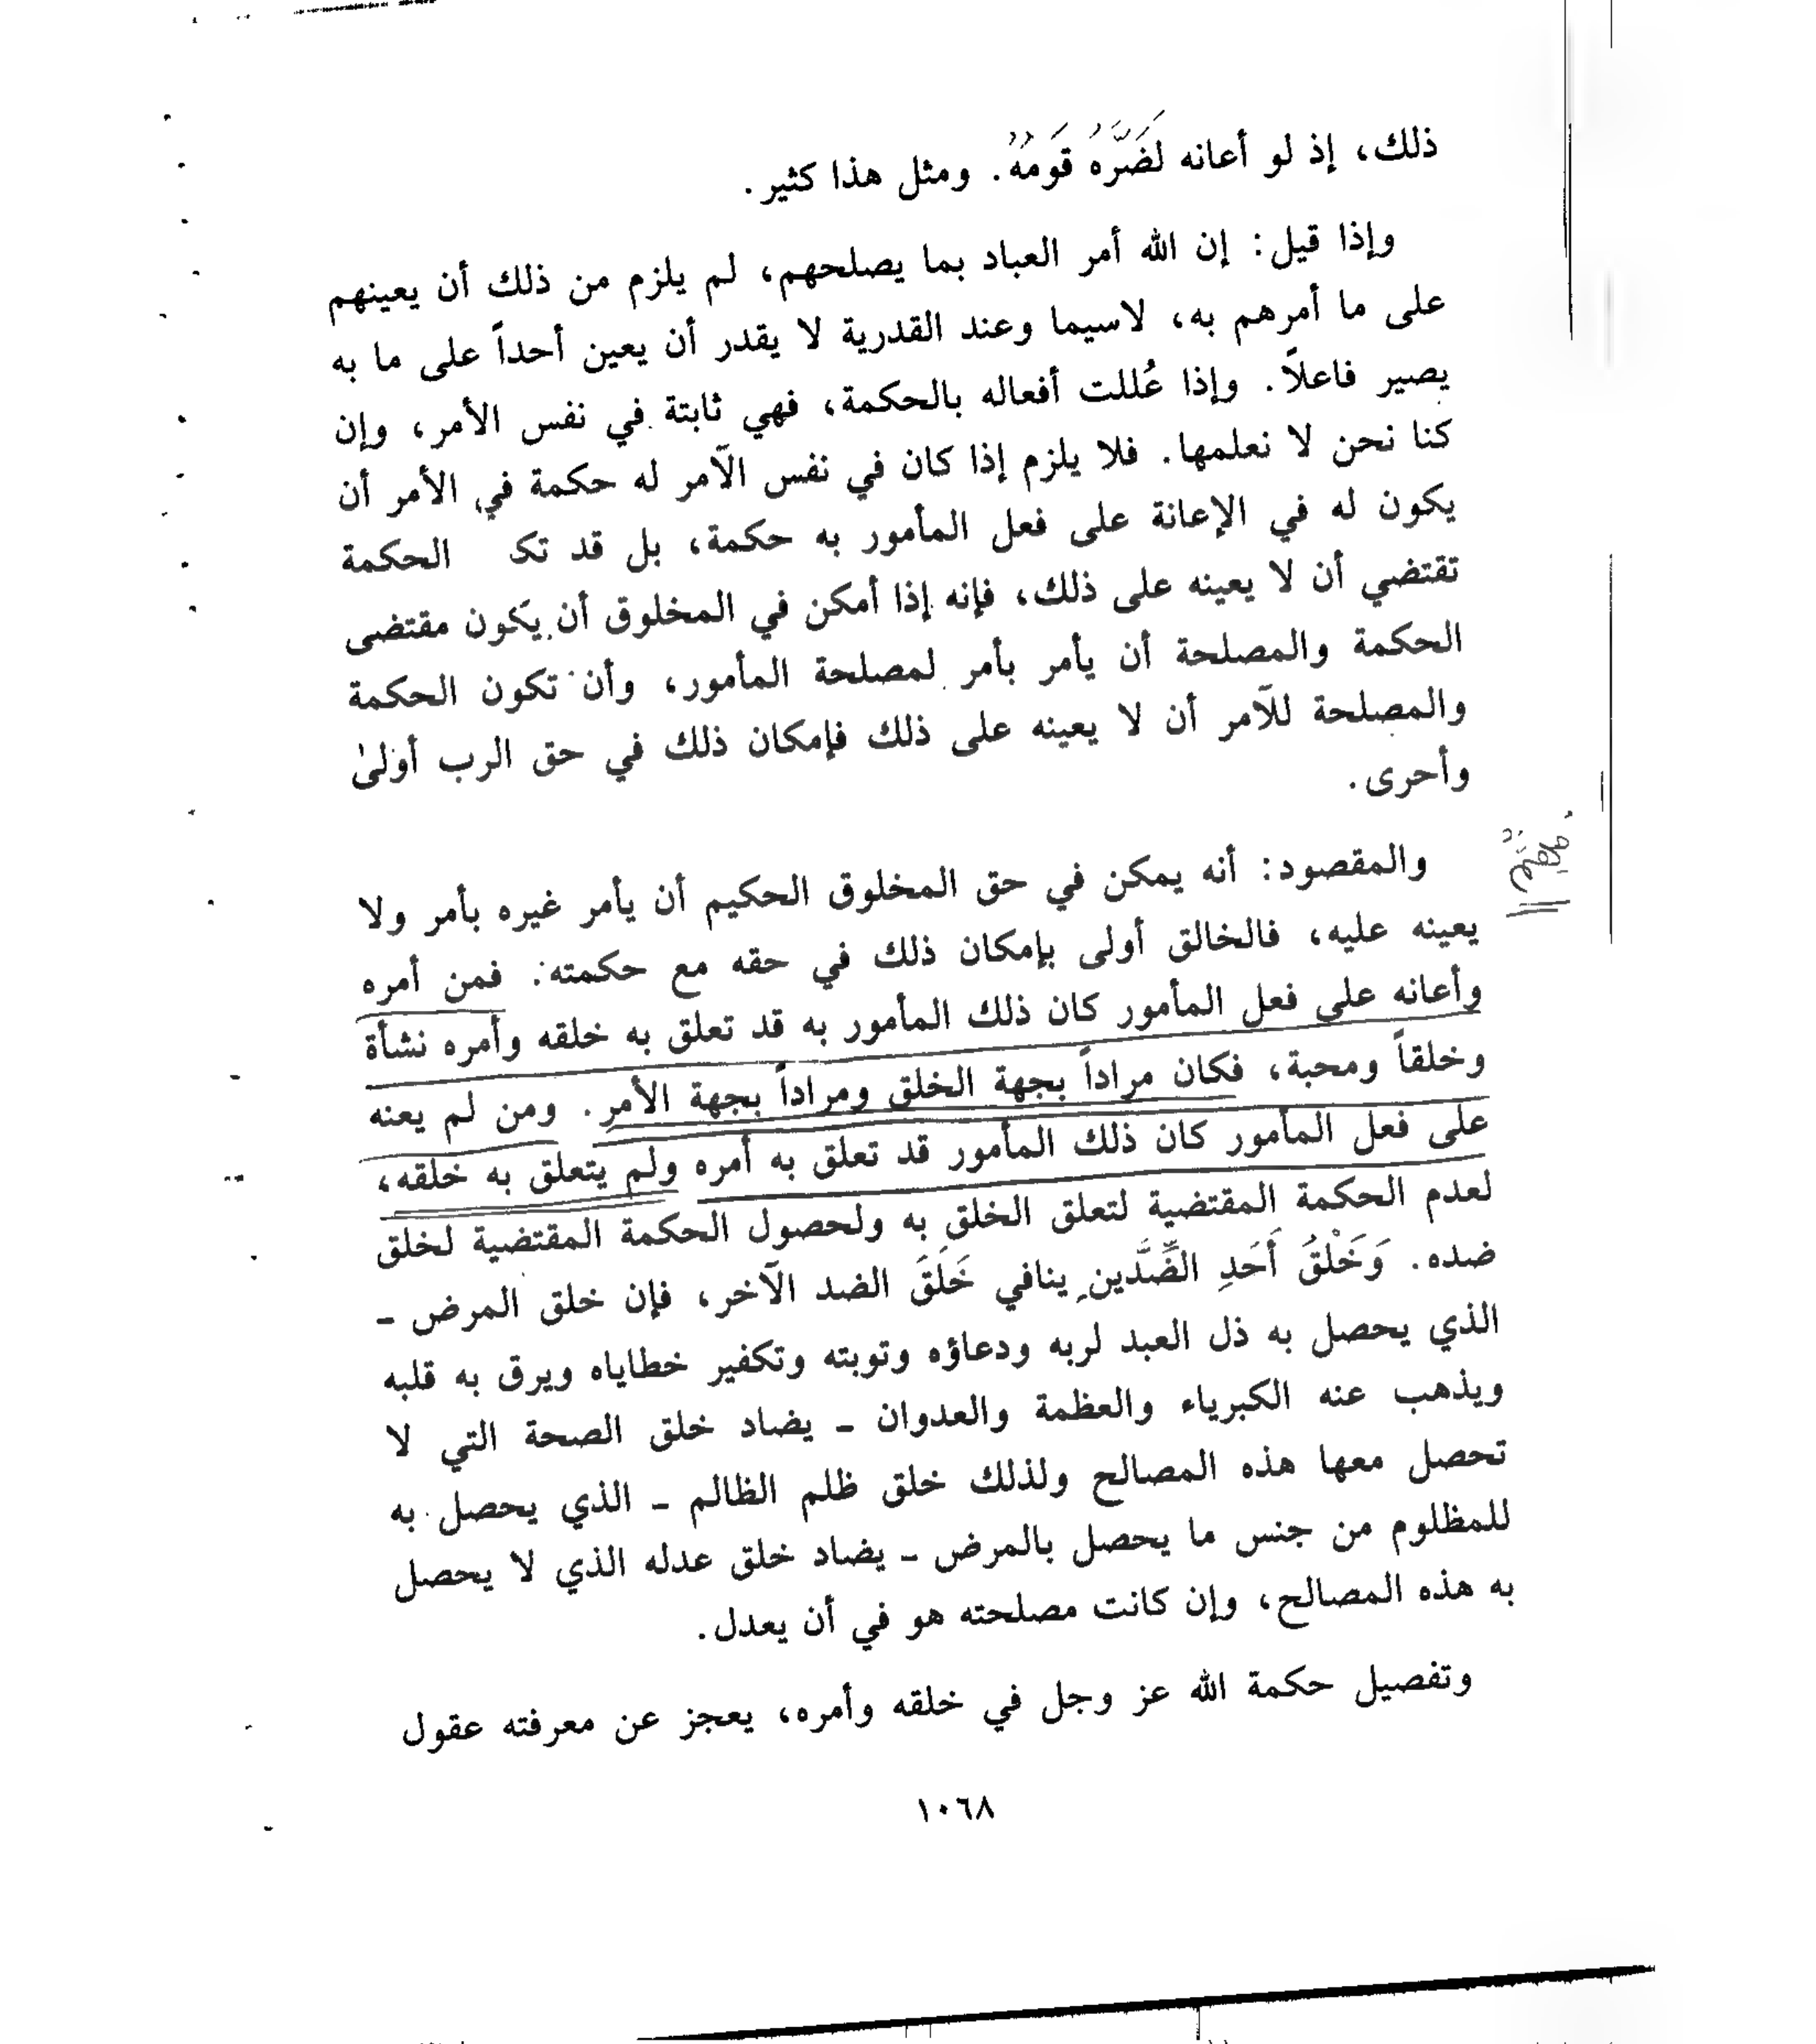 ذلك، إذ لو أعانه لَضَرَّهُ قَومُهُ. ومثل هذا كثير.
وإذا قيل: إن الله أمر العباد بما يصلحهم، لم يلزم من ذلك أن يعينهم
على ما أمرهم به، لاسيما وعند القدرية لا يقدر أن يعين أحداً على ما به
يصير فاعلاً. وإذا عُللت أفعاله بالحكمة، فهي ثابتة في نفس الأمر، وإن
كنا نحن لا نعلمها. فلا يلزم إذا كان في نفس الآمر له حكمة في الأمر أن
يكون له في الإعانة على فعل المأمور به حكمة، بل قد تك الحكمة
تقتضي أن لا يعينه على ذلك، فإنه إذا أمكن في المخلوق أن يكون مقتضى
الحكمة والمصلحة أن يأمر بأمر لمصلحة المأمور، وأن تكون الحكمة
والمصلحة للآمر أن لا يعينه على ذلك فإمكان ذلك في حق الرب أولىٰ
وأحرى.
والمقصود: أنه يمكن في حق المخلوق الحكيم أن يأمر غيره بأمر ولا
يعينه عليه، فالخالق أولى بإمكان ذلك في حقه مع حكمته. فمن أمره
وأعانه على فعل المأمور كان ذلك المأمور به قد تعلق به خلقه وأمره نشأة
وخلقاً ومحبة، فكان مراداً بجهة الخلق ومراداً بجهة الأمر. ومن لم يعنه
على فعل المأمور كان ذلك المأمور قد تعلق به أمره ولم يتعلق به خلقه،
لعدم الحكمة المقتضية لتعلق الخلق به ولحصول الحكمة المقتضية لخلق
ضده. وَخَلْقُ أَحَدِ الضِّدَّينِ ينافي خَلَقَ الضد الآخر، فإن خلق المرض ـ
الذي يحصل به ذل العبد لربه ودعاؤه وتوبته وتكفير خطاياه ويرق به قلبه
ويذهب عنه الكبرياء والعظمة والعدوان ـ يضاد خلق الصحة التي لا
تحصل معها هذه المصالح ولذلك خلق ظلم الظالم ـ الذي يحصل به
للمظلوم من جنس ما يحصل بالمرض ـ يضاد خلق عدله الذي لا يحصل
به هذه المصالح، وإن كانت مصلحته هو في أن يعدل.
وتفصيل حكمة الله عز وجل في خلقه وأمره، يعجز عن معرفته عقول
١٠٦٨